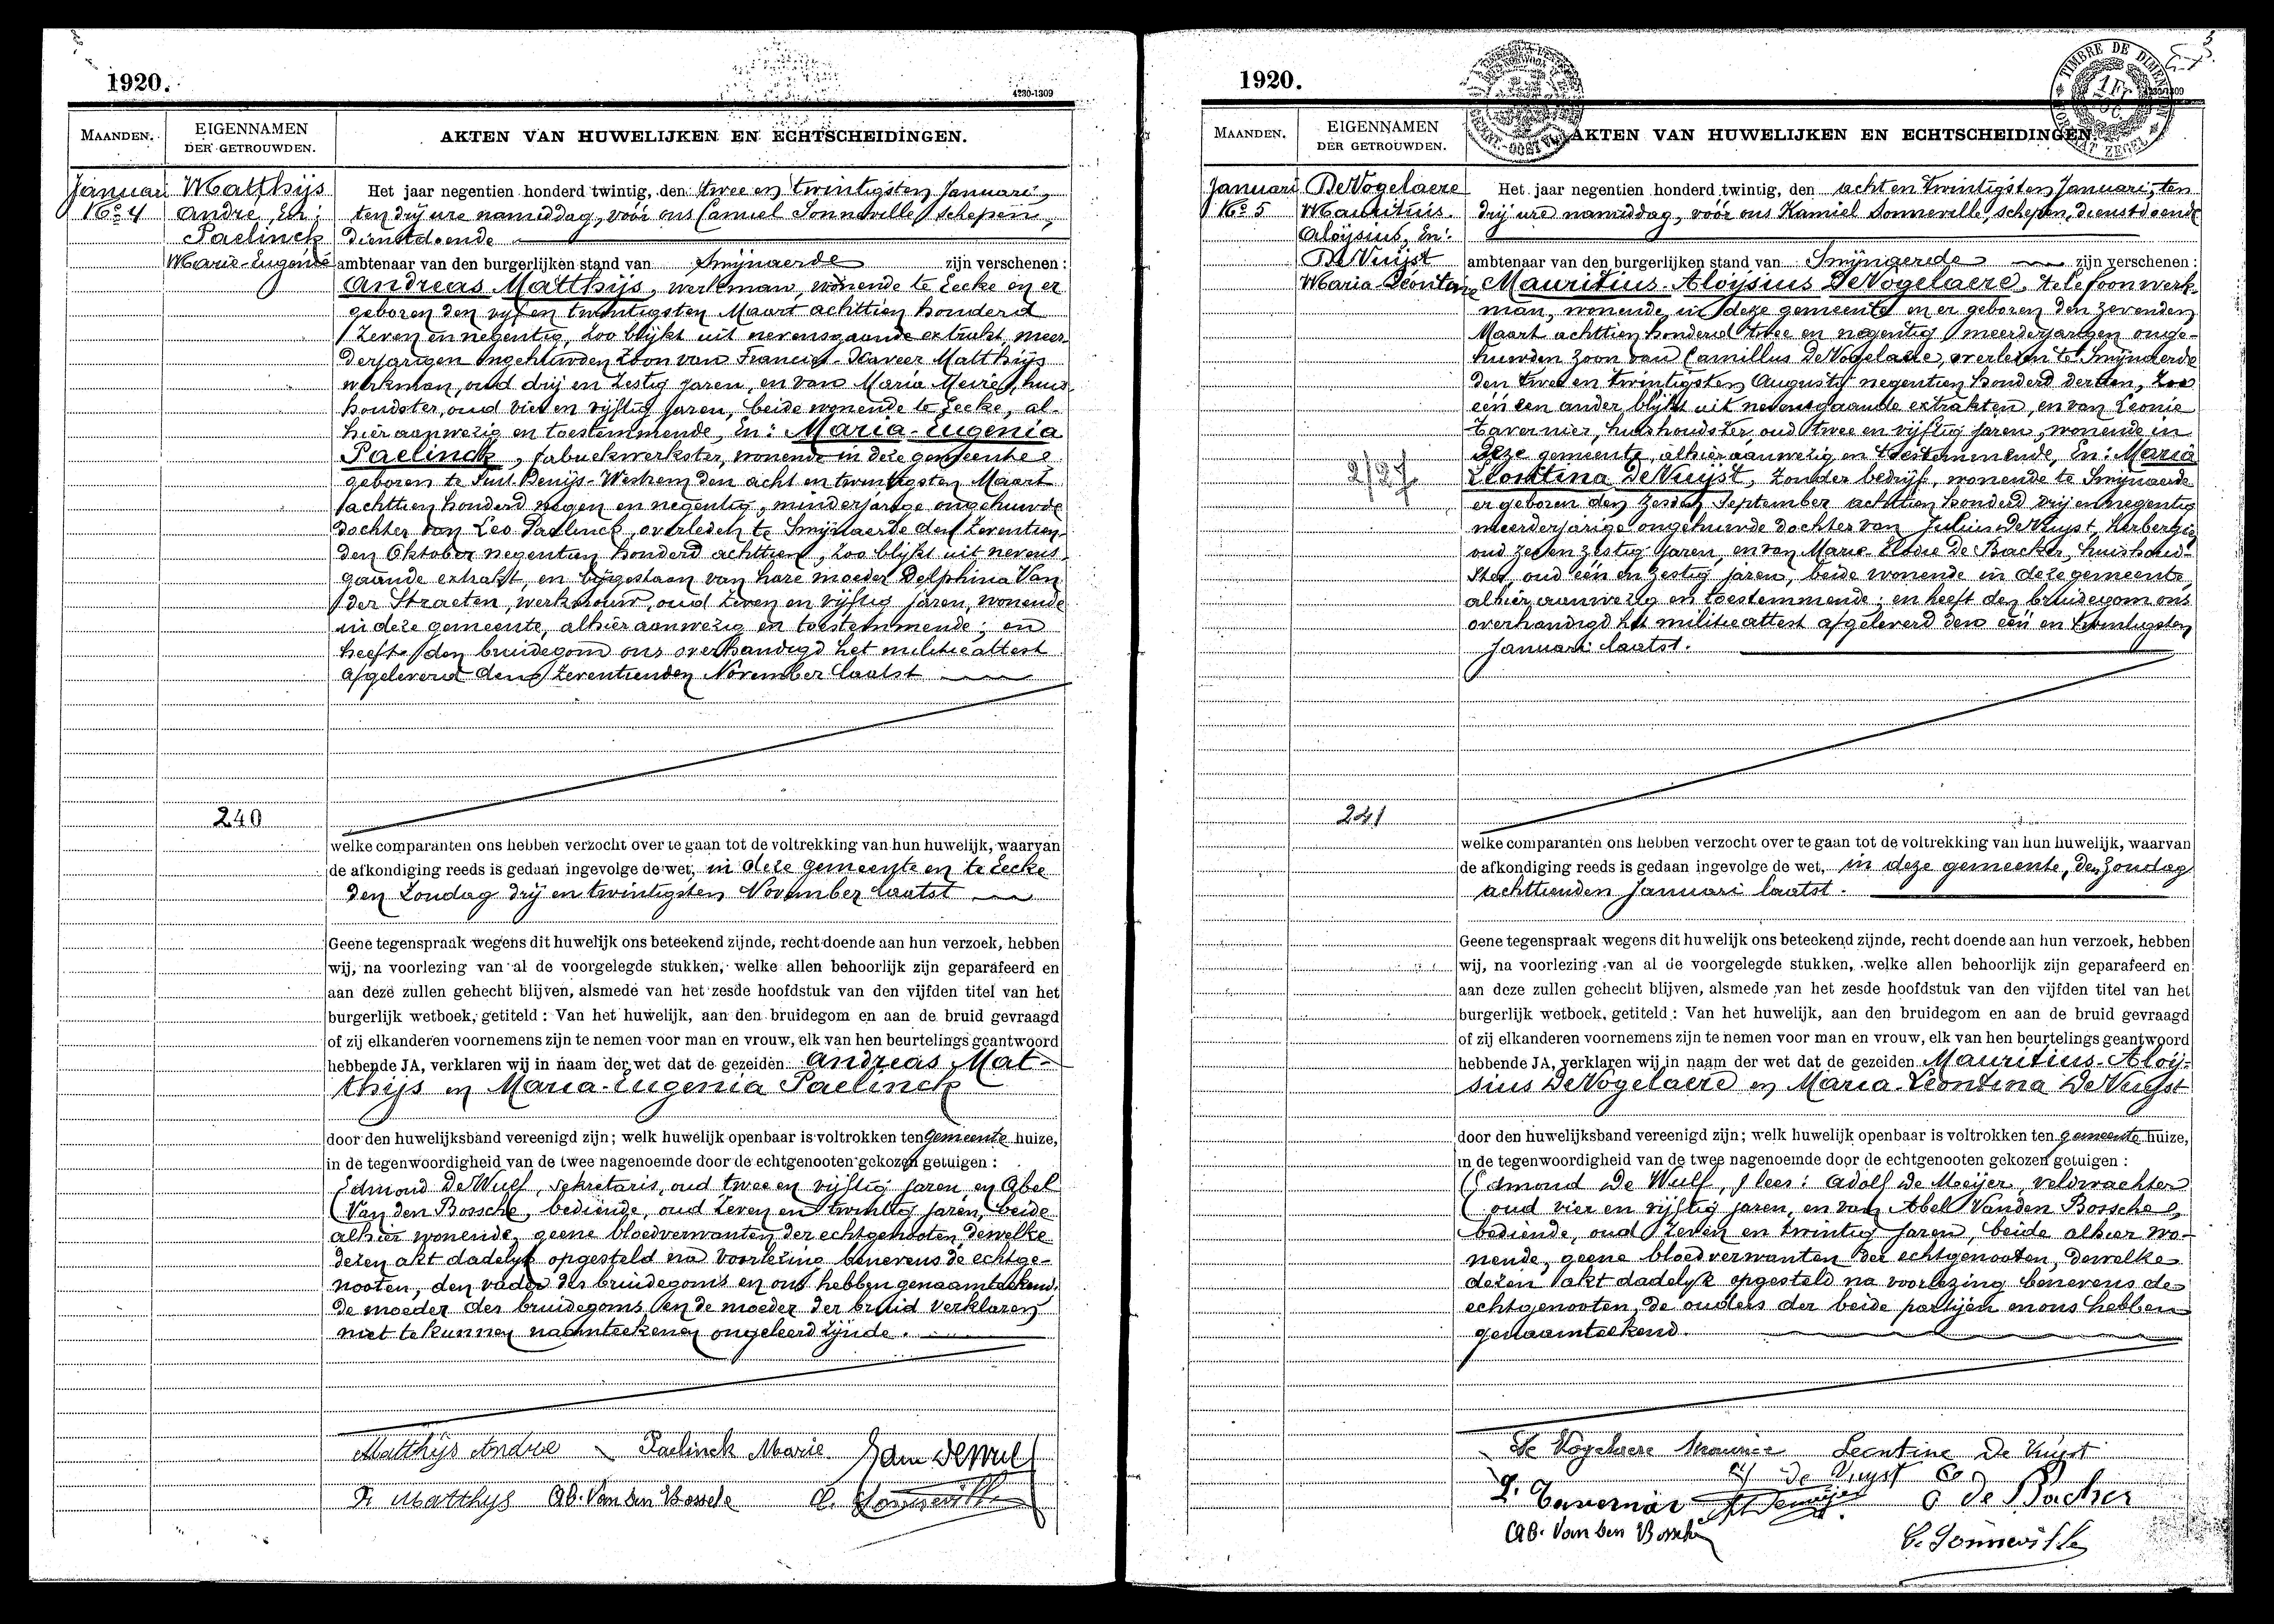 1920.
4230-1309
MAANDEN.
EIGENNAMEN
DER GETROUWDEN.
AKTEN VAN HUWELIJKEN EN ECHTSCHEIDINGEN.
Januari
No 4
Matthijs
Andre, En:
Paelinck
Marie-Eugenie
240
Het jaar negentien honderd twintig, den twee en twintigsten Januari,
ten drij ure namiddag, vóór ons Camiel Sonneville, schepen,
dienstdoende
ambtenaar van den burgerlijken stand van Smijnaerde zijn verschenen:
Andreas Matthijs, werkman, wonende te Eecke en er
geboren den vijf en twintigsten Maart achttien honderd
zeven en negentig, zoo blijkt uit nevensgaande extrakt, meer-
derjarigen ongehuwden zoon van Francies-Xaveer Matthijs
werkman, oud drij en zestig jaren, en van Maria Meirie, huis-
houdster, oud vier en vijftig jaren, beide wonende te Eecke, al-
hier aanwezig en toestemmende, En: Maria-Eugenia
Paelinck, fabriekwerkster, wonende in deze gemeente
geboren te Sint Denijs-Westrem den acht en twintigsten Maart
achttien honderd negen en negentig, minderjarige ongehuwde
dochter van Leo Paelinck, overleden te Smijnaerde den zeventien-
den Oktober negentien honderd achttien, zoo blijkt uit nevens-
gaande extrakt, en bijgestaan van hare moeder Delphina Van
der Straeten, werkvrouw, oud zeven en vijftig jaren, wonende
in deze gemeente, alhier aanwezig en toestemmende; en
heeft den bruidegom ons overhandigd het militieattest
afgeleverd den zeventienden November laatst
welke comparanten ons hebben verzocht over te gaan tot de voltrekking van hun huwelijk, waarvan
de afkondiging reeds is gedaan ingevolge de wet, in deze gemeente en te Eecke
den Zondag drij en twintigsten November laatst
Geene tegenspraak wegens dit huwelijk ons beteekend zijnde, recht doende aan hun verzoek, hebben
wij, na voorlezing van al de voorgelegde stukken, welke allen behoorlijk zijn geparafeerd en
aan deze zullen gehecht blijven, alsmede van het zesde hoofdstuk van den vijfden titel van het
burgerlijk wetboek, getiteld: Van het huwelijk, aan den bruidegom en aan de bruid gevraagd
of zij elkanderen voornemens zijn te nemen voor man en vrouw, elk van hen beurtelings geantwoord
hebbende JA, verklaren wij in naam der wet dat de gezeiden Andreas Mat-
thijs en Maria-Eugenia Paelinck
door den huwelijksband vereenigd zijn; welk huwelijk openbaar is voltrokken ten gemeente huize,
in de tegenwoordigheid van de twee nagenoemde door de echtgenooten gekozen getuigen:
Edmond De Wulf, sekretaris, oud twee en vijftig jaren, en Abel
Van den Bossche, bediende, oud zeven en twintig jaren, beide
alhier wonende, geene bloedverwanten der echtgenooten, dewelke
dezen akt dadelijk opgesteld na voorlezing benevens de echtge-
nooten, den vader des bruidegoms en ons hebben genaamteekend.
de moeder des bruidegoms en de moeder der bruid verklaren
niet te kunnen naamteekenen ongeleerd zijnde.
Matthijs Andre Paelinck Marie Edm DeWulf
F. Matthys Ab. Van den Bossche C. Sonneville
1920.
5
TIMBRE DE DIMENSION
FORMAAT ZEGEL
MAANDEN.
EIGENNAMEN
DER GETROUWDEN.
AKTEN VAN HUWELIJKEN EN ECHTSCHEIDINGEN.
Januari
No 5
De Vogelaere
Mauritius.
Aloïsius, En:
De Vuijst
Maria Leontine
2/27
241
Het jaar negentien honderd twintig, den acht en twintigsten Januari, ten
drij ure namiddag, vóór ons Kamiel Sonneville, schepen, dienstdoende
ambtenaar van den burgerlijken stand van Smijnaerde zijn verschenen:
Mauritius-Aloijsius De Vogelaere, telefoonwerk-
man, wonende in deze gemeente en er geboren den zevenden
Maart achttien honderd twee en negentig, meerderjarigen onge-
huwden zoon van Camillus De Vogelaere, overleden te Smijnaerde
den twee en twintigsten Augusty negentien honderd dertien, zoo
een en ander blijkt uit nevensgaande extrakten, en van Leonie
Tavernier, huishoudster, oud twee en vijftig jaren, wonende in
deze gemeente, alhier aanwezig en toestemmende, En: Maria
Leontina De Vuijst, zonder bedrijf, wonende te Smijnaerde
er geboren den zesden September achttien honderd drij en negentig
meerderjarige ongehuwde dochter van Julius De Vuyst, herbergier
oud zes en zestig jaren, en van Marie Elodie De Backer, huishoud-
ster, oud één en zestig jaren, beide wonende in deze gemeente,
alhier aanwezig en toestemmende; en heeft den bruidegom ons
overhandigd het militieattest afgeleverd den één en twintigsten
Januari laatst.
welke comparanten ons hebben verzocht over te gaan tot de voltrekking van hun huwelijk, waarvan
de afkondiging reeds is gedaan ingevolge de wet, in deze gemeente, den Zondag
achttienden Januari laatst.
Geene tegenspraak wegens dit huwelijk ons beteekend zijnde, recht doende aan hun verzoek, hebben
wij, na voorlezing van al de voorgelegde stukken, welke allen behoorlijk zijn geparafeerd en
aan deze zullen gehecht blijven, alsmede van het zesde hoofdstuk van den vijfden titel van het
burgerlijk wetboek, getiteld: Van het huwelijk, aan den bruidegom en aan de bruid gevraagd
of zij elkanderen voornemens zijn te nemen voor man en vrouw, elk van hen beurtelings geantwoord
hebbende JA, verklaren wij in naam der wet dat de gezeiden Mauritius-Aloij-
sius De Vogelaere en Maria-Leontina De Vuijst
door den huwelijksband vereenigd zijn; welk huwelijk openbaar is voltrokken ten gemeente huize,
in de tegenwoordigheid van de twee nagenoemde door de echtgenooten gekozen getuigen:
(Edmond De Wulf,) lees: Adolf De Meijer, veldwachter
oud vier en vijftig jaren, en van Abel Vanden Bossche
bediende, oud zeven en twintig jaren, beide alhier wo-
nende, geene bloedverwanten der echtgenooten, dewelke
dezen akt dadelijk opgesteld na voorlezing benevens de
echtgenooten, de ouders der beide partijen en ons hebben
genaamteekend.
De Vogelaere Maurice Leontine De Vuyst
De Vuyst
L. Tavernier A. Demeijer De Backer
Ab. Van den Bossche
C. Sonneville